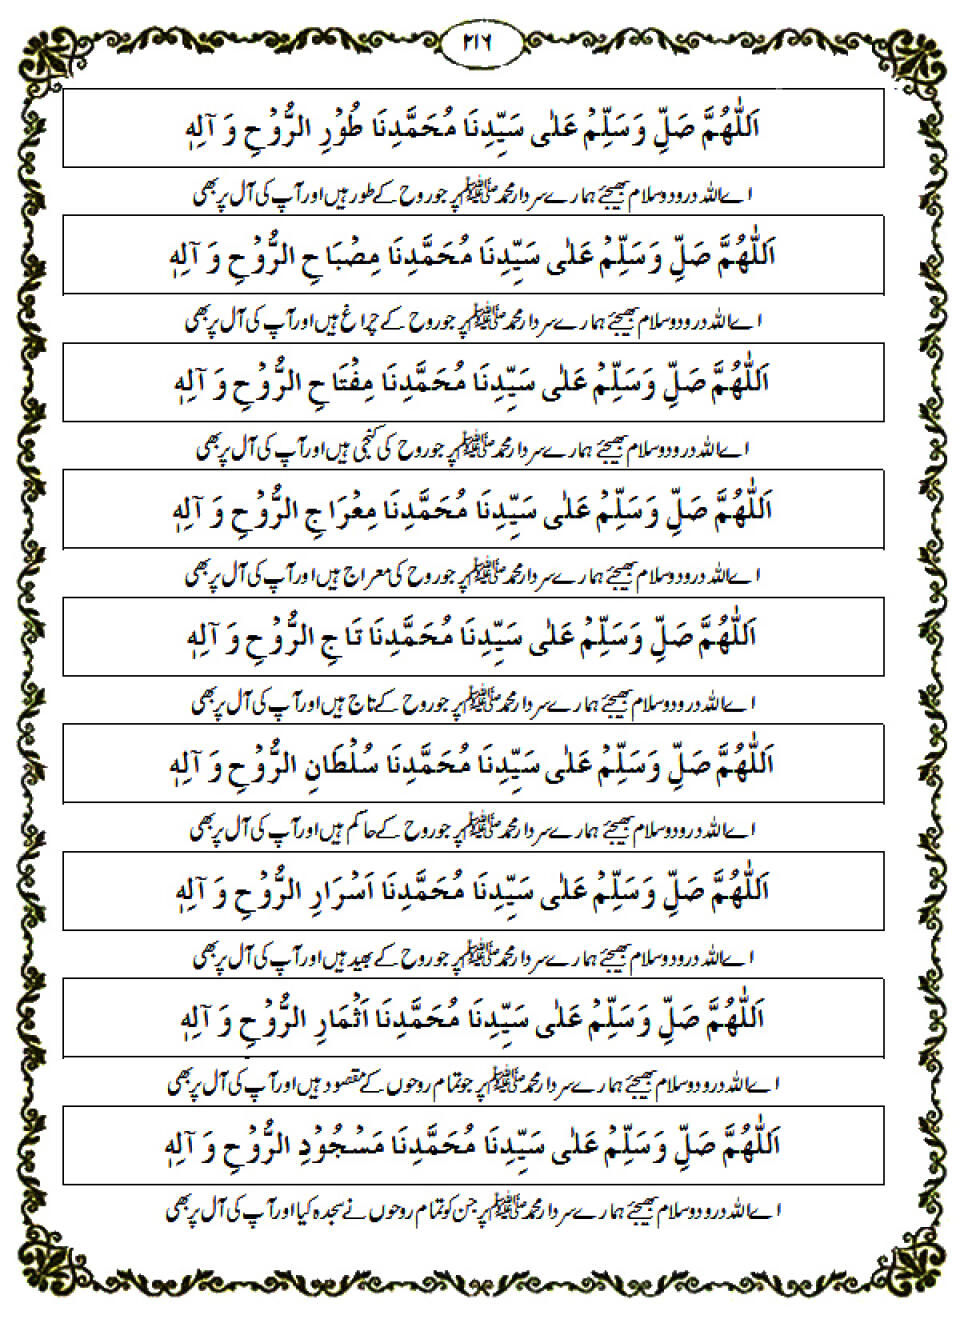 ۲۱۶
اَللّٰهُمَّ صَلِّ وَسَلِّمْ عَلٰى سَيِّدِنَا مُحَمَّدِنَا طُوْرِ الرُّوْحِ وَ آلِهٖ
اے اللہ درود و سلام بھیجئے ہمارے سردار محمد ﷺ پر جو روح کے طور ہیں اور آپ کی آل پر بھی
اَللّٰهُمَّ صَلِّ وَسَلِّمْ عَلٰى سَيِّدِنَا مُحَمَّدِنَا مِصْبَاحِ الرُّوْحِ وَ آلِهٖ
اے اللہ درود و سلام بھیجئے ہمارے سردار محمد ﷺ پر جو روح کے چراغ ہیں اور آپ کی آل پر بھی
اَللّٰهُمَّ صَلِّ وَسَلِّمْ عَلٰى سَيِّدِنَا مُحَمَّدِنَا مِفْتَاحِ الرُّوْحِ وَ آلِهٖ
اے اللہ درود و سلام بھیجئے ہمارے سردار محمد ﷺ پر جو روح کی کنجی ہیں اور آپ کی آل پر بھی
اَللّٰهُمَّ صَلِّ وَسَلِّمْ عَلٰى سَيِّدِنَا مُحَمَّدِنَا مِعْرَاجِ الرُّوْحِ وَ آلِهٖ
اے اللہ درود و سلام بھیجئے ہمارے سردار محمد ﷺ پر جو روح کی معراج ہیں اور آپ کی آل پر بھی
اَللّٰهُمَّ صَلِّ وَسَلِّمْ عَلٰى سَيِّدِنَا مُحَمَّدِنَا تَاجِ الرُّوْحِ وَ آلِهٖ
اے اللہ درود و سلام بھیجئے ہمارے سردار محمد ﷺ پر جو روح کے تاج ہیں اور آپ کی آل پر بھی
اَللّٰهُمَّ صَلِّ وَسَلِّمْ عَلٰى سَيِّدِنَا مُحَمَّدِنَا سُلْطَانِ الرُّوْحِ وَ آلِهٖ
اے اللہ درود و سلام بھیجئے ہمارے سردار محمد ﷺ پر جو روح کے حاکم ہیں اور آپ کی آل پر بھی
اَللّٰهُمَّ صَلِّ وَسَلِّمْ عَلٰى سَيِّدِنَا مُحَمَّدِنَا اَسْرَارِ الرُّوْحِ وَ آلِهٖ
اے اللہ درود و سلام بھیجئے ہمارے سردار محمد ﷺ پر جو روح کے بھید ہیں اور آپ کی آل پر بھی
اَللّٰهُمَّ صَلِّ وَسَلِّمْ عَلٰى سَيِّدِنَا مُحَمَّدِنَا اَثْمَارِ الرُّوْحِ وَ آلِهٖ
اے اللہ درود و سلام بھیجئے ہمارے سردار محمد ﷺ پر جو تمام روحوں کے مقصود ہیں اور آپ کی آل پر بھی
اَللّٰهُمَّ صَلِّ وَسَلِّمْ عَلٰى سَيِّدِنَا مُحَمَّدِنَا مَسْجُوْدِ الرُّوْحِ وَ آلِهٖ
اے اللہ درود و سلام بھیجئے ہمارے سردار محمد ﷺ پر جن کو تمام روحوں نے سجدہ کیا اور آپ کی آل پر بھی